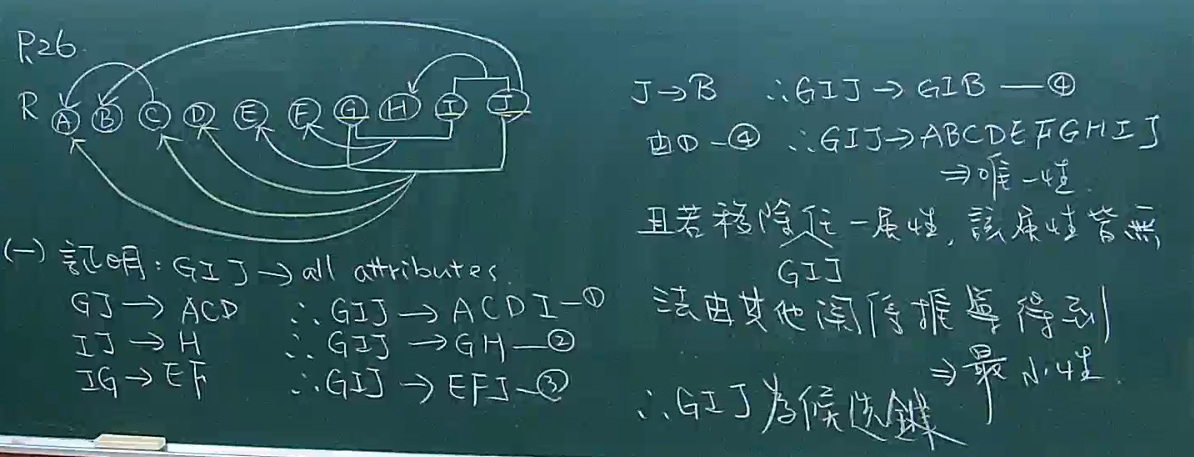 P.26.
R A B C D E F G H I J
(一) 証明: GIJ → all attributes.
GJ → ACD ∴ GIJ → ACDI — ①
IJ → H ∴ GIJ → GH — ②
IG → EF ∴ GIJ → EFJ — ③
J → B ∴ GIJ → GIB — ④
由① - ④ ∴ GIJ → ABCDEFGHIJ
⇒ 唯一性.
且若移除任一属性, 該属性皆無
GIJ
法由其他関係推導得到
⇒ 最小性.
∴ GIJ 為候选鍵